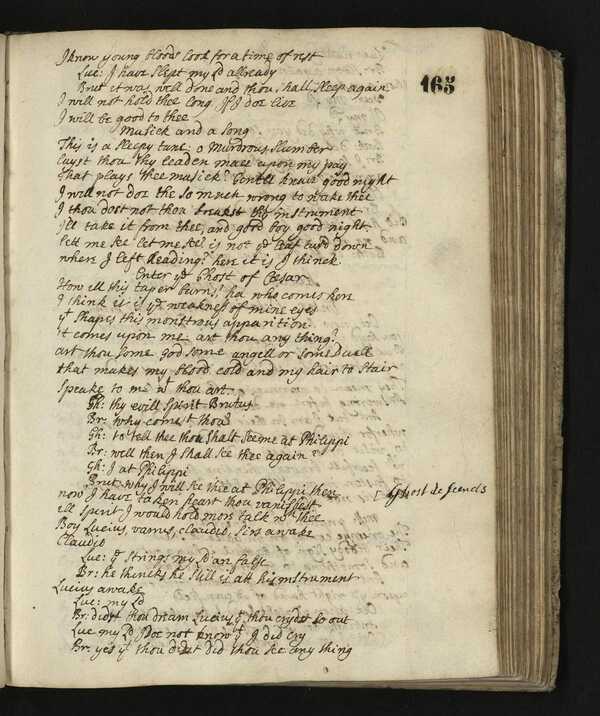 I know young bloods look for a time of rest
Luc: I have slept my Ld allready
Brut it was well done and thou shall sleep again
I will not hold thee long If I doe live
I will be good to thee
Musick and a song
This is a sleepy tune: o Murdrous slumber
layst thou thy leaden mace upon my
that plays thee musick? Gentle knave good night
I will not doe the so much wrong to wake thee
I thou dost not thou breakst thy instrument
I'll take it from thee, and good boy good night
lett me see let me see is not ye leaf turd down
where I left Reading? here it is I thinck
Enter ye Ghost of Cæsar
How ill this taper burns! ha who comes here
I think is is ye weakness of mine eyes
yt shapes this monstrous apparition
't comes upon me art thou any thing?
art thou some god some angell or some
that makes my blood cold and my hair to stair
Speake to me wt thou art
Gh: thy evill spirit Brutus
Br: why comest thou?
Gh: to tell thee thou shalt see me at Philippi
Br: well then I shall see thee again?
Gh: I at Philippi
Brut: why I will see thee at Philippi then
now I have taken heart thou vanishest
ill spirit I would hold more talk wth thee
Boy Lucius, varrus, claudio, sirs awake
Claudio
Luc: ye strings my Ld are false
Br: he thincks he still is att his instrument
Lucius awake
Luc: my Ld
Br: didst thou dream Lucius yt thou crydst so out
Luc my Ld I doe not know yt I did cry
Br: yes yt thou didst did thou see any thing
165
[ Ghost descends